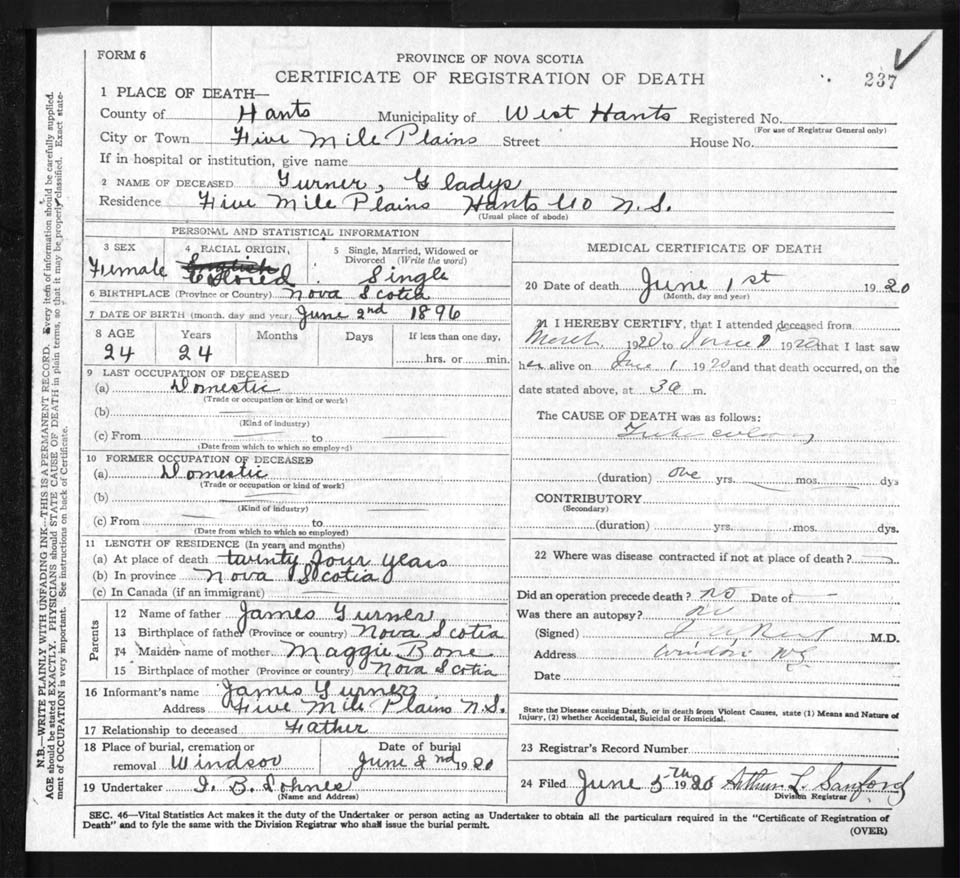 FORM 6
PROVINCE OF NOVA SCOTIA
CERTIFICATE OF REGISTRATION OF DEATH
237
1 PLACE OF DEATH—
County of Hants Municipality of West Hants Registered No.
(For use of Registrar General only)
City or Town Five Mile Plains Street House No.
If in hospital or institution, give name
2 NAME OF DECEASED Turner, Gladys
Residence Five Mile Plains Hants Co N.S.
(Usual place of abode)
PERSONAL AND STATISTICAL INFORMATION
3 SEX 4 RACIAL ORIGIN, 5 Single, Married, Widowed or Divorced (Write the word)
Female English Colored Single
6 BIRTHPLACE (Province or Country) Nova Scotia
7 DATE OF BIRTH (month, day and year) June 2nd 1896
8 AGE Years Months Days If less than one day,
24 24 hrs. or min.
9 LAST OCCUPATION OF DECEASED
(a) Domestic
(Trade or occupation or kind or work)
(b) —
(Kind of industry)
(c) From — to —
(Date from which to which so employed)
10 FORMER OCCUPATION OF DECEASED
(a) Domestic
(Trade or occupation or kind of work)
(b) —
(Kind of industry)
(c) From — to
(Date from which to which so employed)
11 LENGTH OF RESIDENCE (In years and months)
(a) At place of death twenty four years
(b) In province Nova Scotia
(c) In Canada (if an immigrant) —
Parents
12 Name of father James Turner
13 Birthplace of father (Province or country) Nova Scotia
14 Maiden name of mother Maggie Bone
15 Birthplace of mother (Province or country) Nova Scotia
16 Informant's name James Turner
Address Five Mile Plains N.S.
17 Relationship to deceased Father
18 Place of burial, cremation or removal Windsor
Date of burial June 2nd 1920
19 Undertaker I. B. Lohnes
(Name and Address)
MEDICAL CERTIFICATE OF DEATH
20 Date of death June 1st 1920
(Month, day and year)
21 I HEREBY CERTIFY, that I attended deceased from
March 1920 to June 1 1920 that I last saw
her alive on June 1 1920 and that death occurred, on the
date stated above, at 3 a m.
The CAUSE OF DEATH was as follows:
Tuberculosis
(duration) one yrs. — mos. — dys
CONTRIBUTORY
(Secondary)
(duration) yrs. mos. dys.
22 Where was disease contracted if not at place of death? —
Did an operation precede death? no Date of —
Was there an autopsy? no
(Signed) M.D.
Address Windsor NS
Date
State the Disease causing Death, or in death from Violent Causes, state (1) Means and Nature of
Injury, (2) whether Accidental, Suicidal or Homicidal.
23 Registrar's Record Number
24 Filed June 5th 1920 Arthur L. Sanford
Division Registrar
SEC. 46—Vital Statistics Act makes it the duty of the Undertaker or person acting as Undertaker to obtain all the particulars required in the "Certificate of Registration of
Death" and to fyle the same with the Division Registrar who shall issue the burial permit.
(OVER)
N.B.—WRITE PLAINLY WITH UNFADING INK—THIS IS A PERMANENT RECORD. Every item of information should be carefully supplied.
AGE should be stated EXACTLY. PHYSICIANS should STATE CAUSE OF DEATH in plain terms, so that it may be properly classified. Exact state-
ment of OCCUPATION is very important. See instructions on back of Certificate.